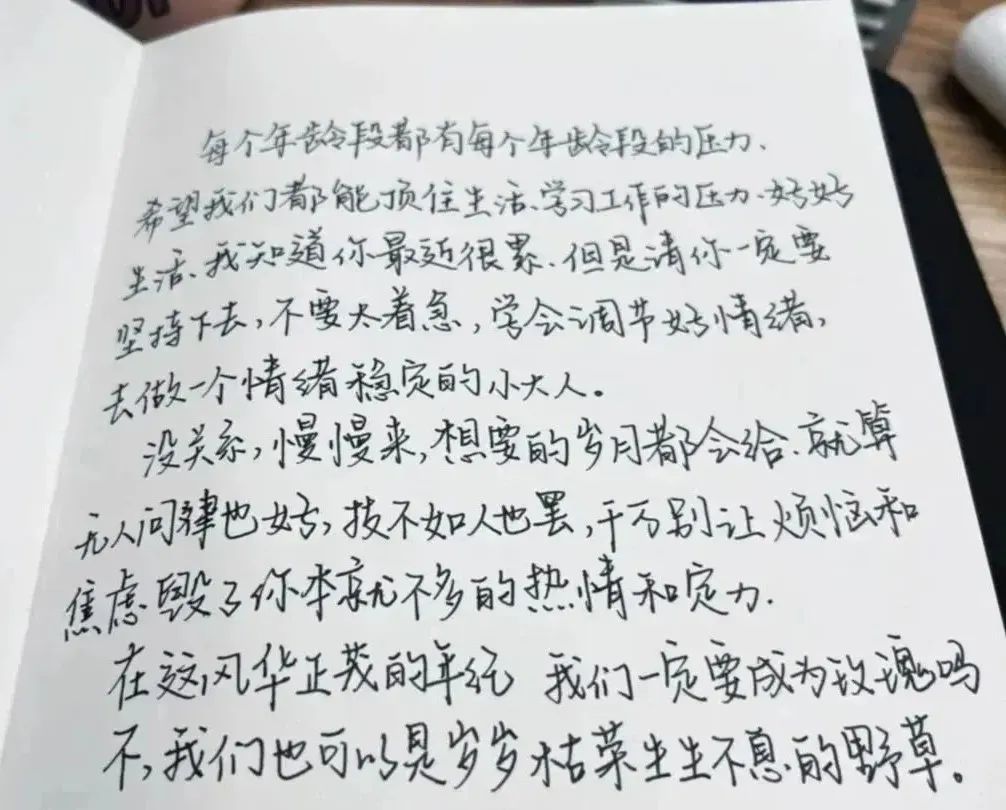 每个年龄段都有每个年龄段的压力.
希望我们都能顶住生活、学习工作的压力.好好
生活、我知道你最近很累、但是请你一定要
坚持下去,不要太着急,学会调节好情绪,
去做一个情绪稳定的小大人。
没关系,慢慢来,想要的岁月都会给.就算
无人问津也好,技不如人也罢,千万别让烦恼和
焦虑毁了你本就不多的热情和定力.
在这风华正茂的年纪 我们一定要成为玫瑰吗
不,我们也可以是岁岁枯荣生生不息的野草。